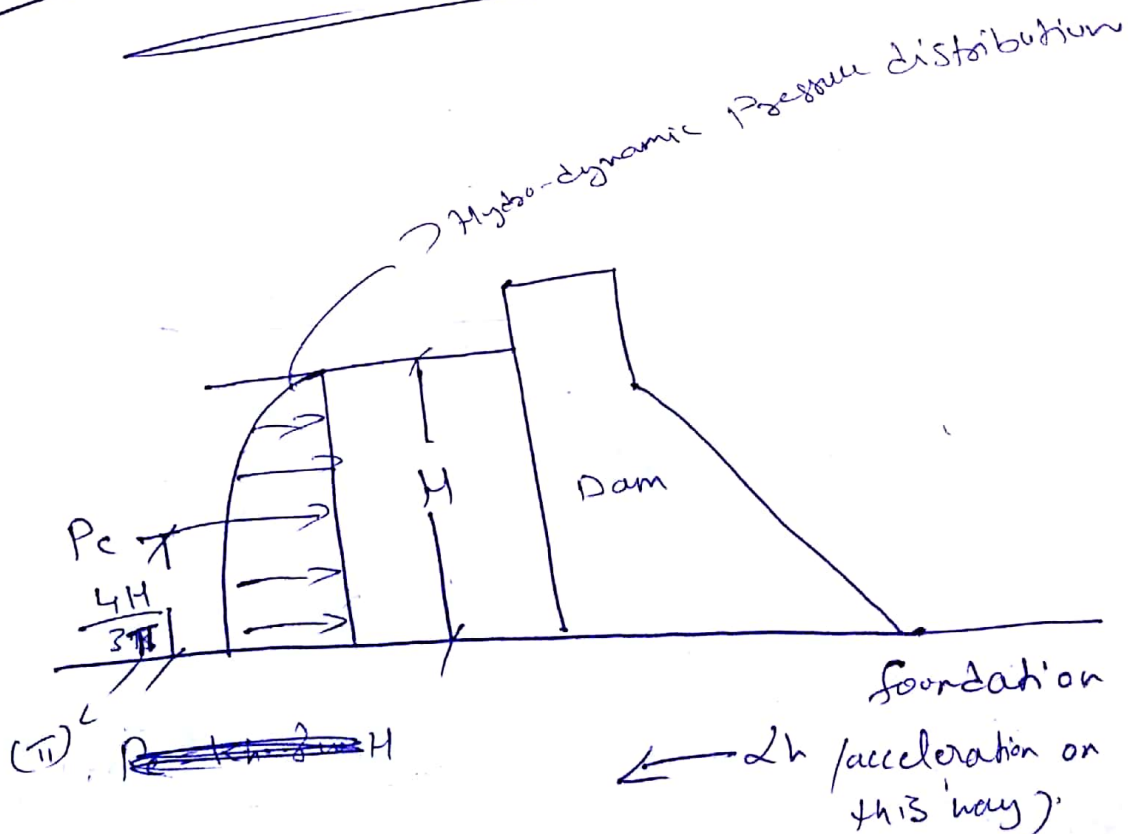 Hydro-dynamic Pressure distribution
H
Dam
Pc
4H
3π
foundation
(π)
H
αh (acceleration on
this way).